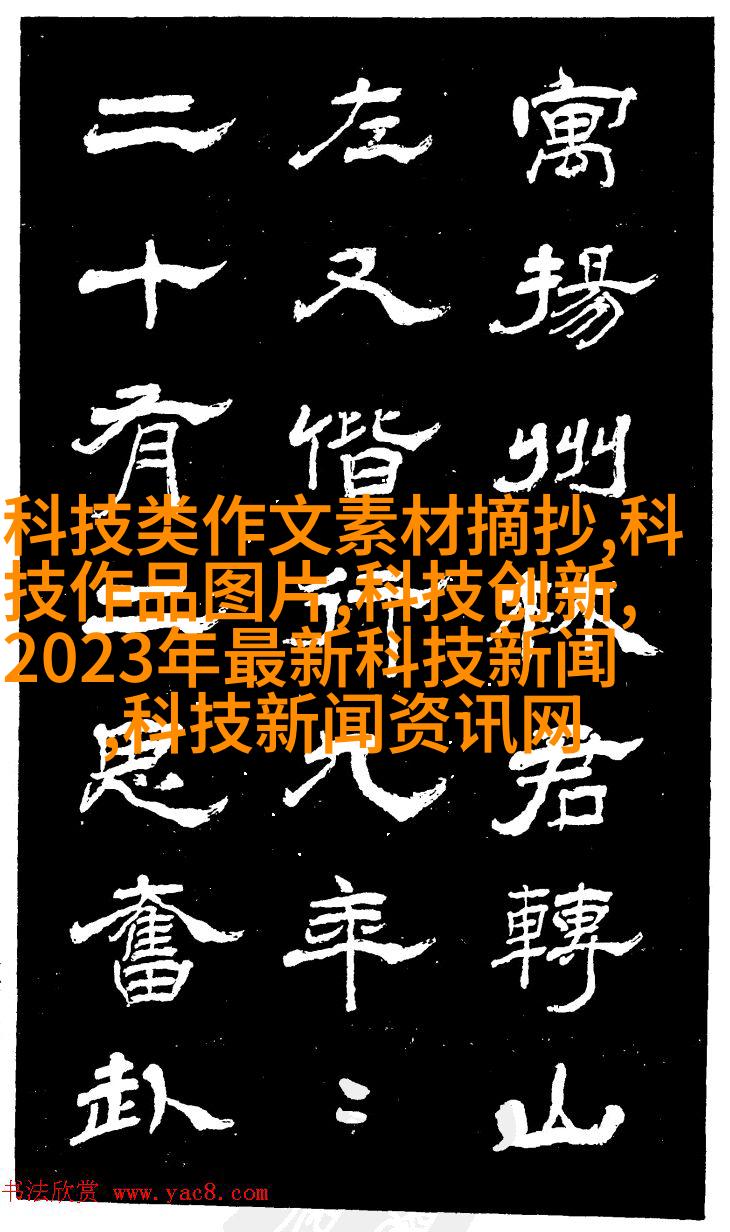 寓揚州君轉山
左又偕行年〻
二十有二思奮赴
科技类作文素材摘抄,科
技作品图片,科技创新,
2023年最新科技新闻
,科技新闻资讯网
书法欣赏 www.yac8.com